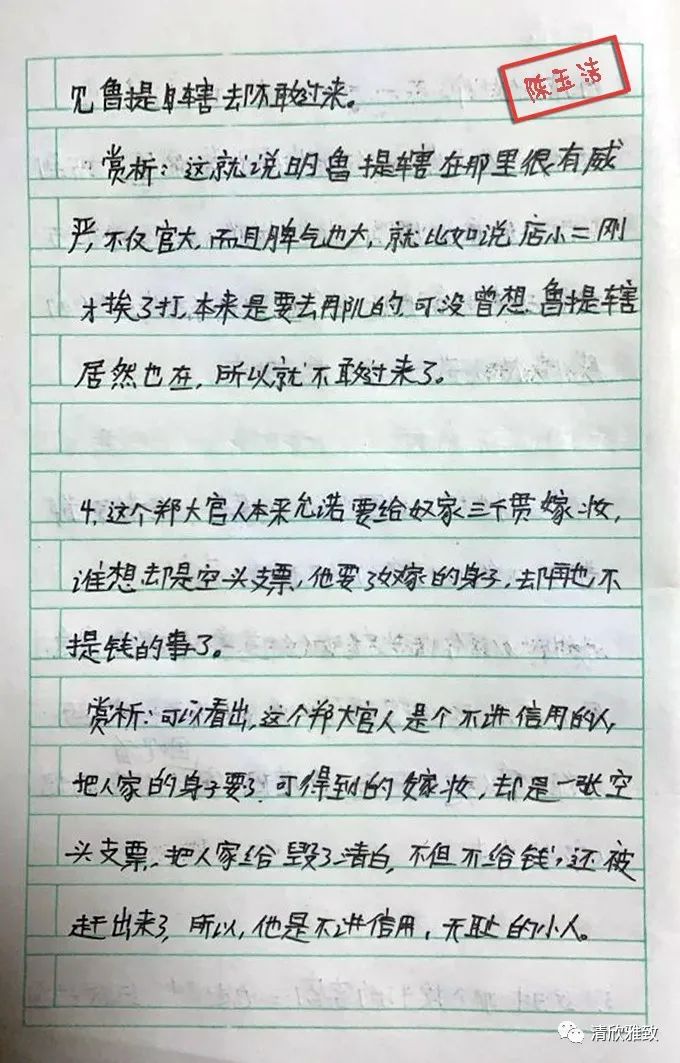 陈玉洁
见鲁提辖去却不敢过来。
赏析:这就说明鲁提辖在那里很有威
严,不仅官大,而且脾气也大,就比如说店小二刚
才挨了打,本来是要去的,可没曾想,鲁提辖
居然也在,所以就不敢过来了。
4、这个郑大官人本来允诺要给奴家三千贯嫁妆,
谁想却是空头支票,他要了奴家的身子,却再也不
提钱的事了。
赏析:可以看出,这个郑大官人是个不讲信用的人,
把人家的身子要了,可得到的嫁妆,却是一张空
头支票,把人家给毁了清白,不但不给钱,还被
赶出来了,所以,他是不讲信用,无耻的小人。
清欣雅致